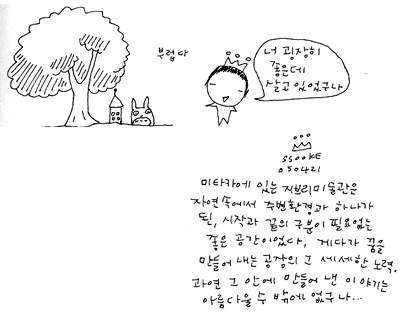 부럽다
너 굉장히
좋은데
살고 있었구나
SSOOKE
050421
미타카에 있는 지브리미술관은
자연속에서 주변환경과 하나가
된, 시작과 끝의 구분이 필요없는
좋은 공간이었다, 게다가 꿈을
만들어 내는 공장의 그 세세한 노력.
과연 그 안에 만들어 낸 이야기는
아름다울 수 밖에 없구나...